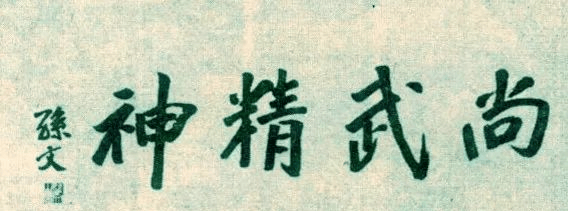 尚武精神
孫文